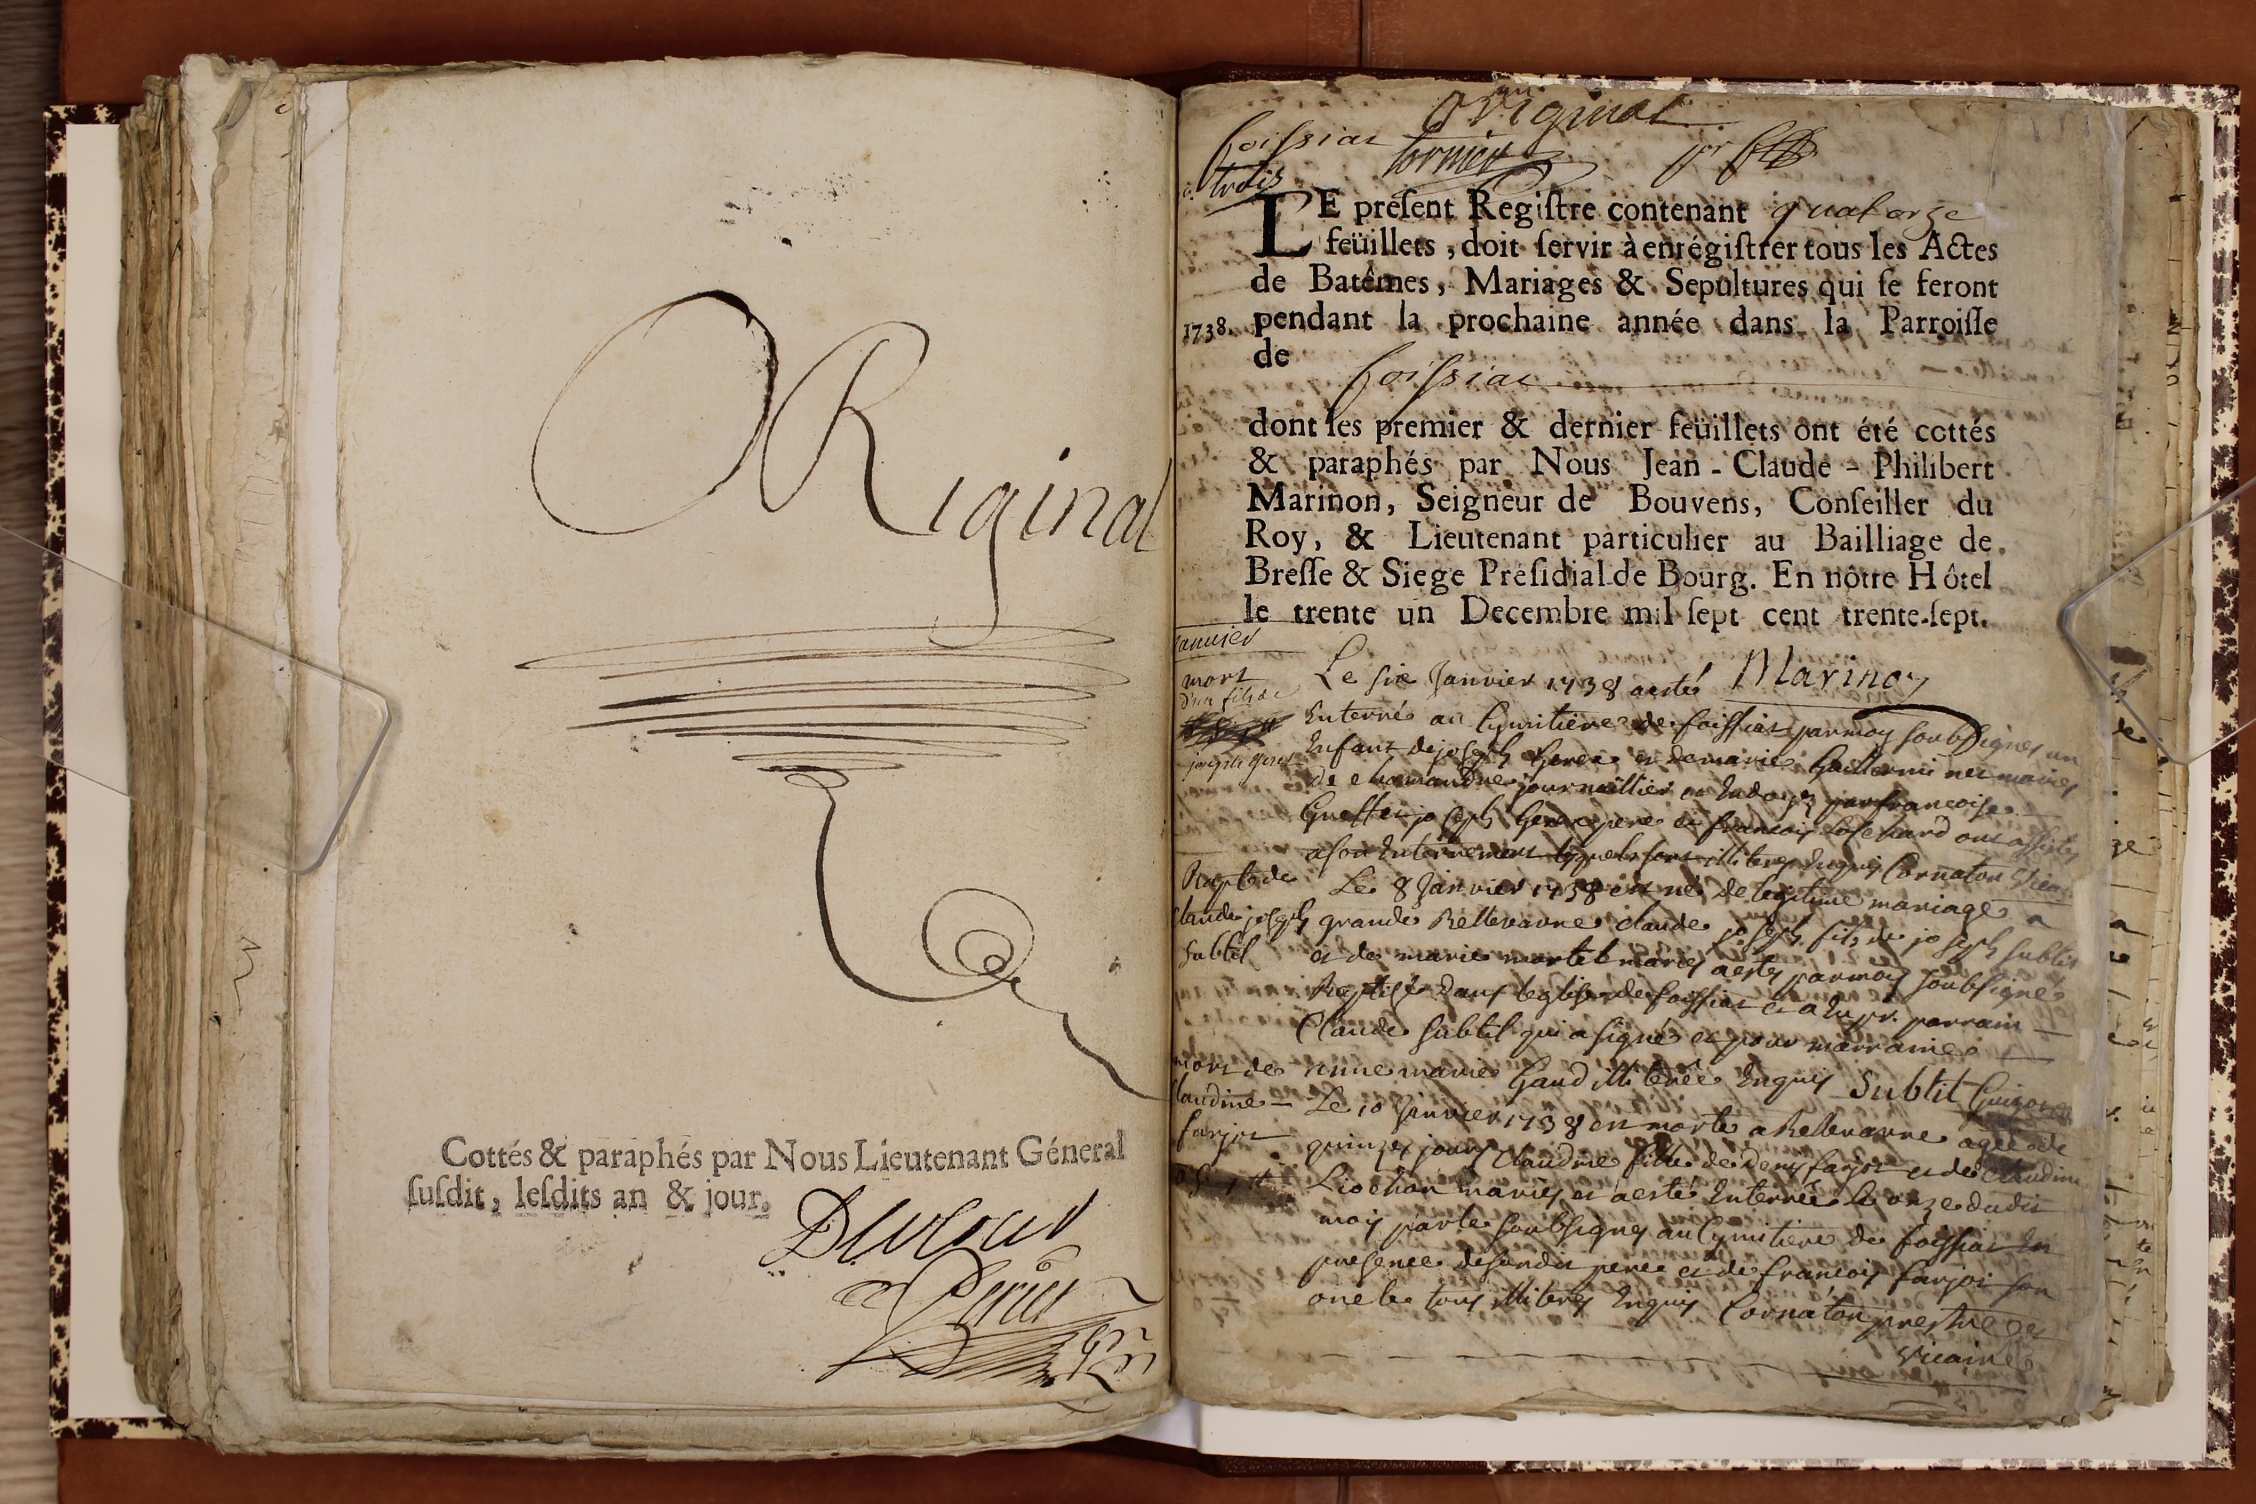 ORiginal
Cottés & paraphés par Nous Lieutenant Géneral
susdit, lesdits an & jour.
Original
foissiat
trois
LE présent Registre contenant quatorze
feüillets, doit servir à enrégistrer tous les Actes
de Batêmes, Mariages & Sepultures qui se feront
1738. pendant la prochaine année dans la Parroisse
de
foissiat
dont les premier & dernier feüillets ont été cottés
& paraphés par Nous Jean-Claude-Philibert
Marinon, Seigneur de Bouvens, Conseiller du
Roy, & Lieutenant particulier au Bailliage de
Bresse & Siege Présidial de Bourg. En nôtre Hôtel
le trente un Decembre mil sept cent trente-sept.
Marinon
Janvier
mort
d'un fils de
joseph
Le six Janvier 1738 a esté
Enterré au Cymitiere de foissiat par moy soubsigné un
Enfant de joseph et de marie mariés
de journallier
joseph pere et francois ont assisté
a son Enterrement illiteres Enquis Cornaton Vicaire
Baptê de
Claude joseph
Subtil
Le 8 Janvier 1738 est né de legitime mariage a
grande Bellevavre Claude joseph fils de joseph subtil
et de marie martel mariés a esté par moy soubsigné
Baptisé dans leglise de foissiat et a Eu pr. parrain
Claude Subtil qui a signé et pour marraine
marie illiterée Enquis Subtil
mort de
Claudine
farjot
Le 10 Janvier 1738 est morte a Bellevavre agée de
quinze jours Claudine fille de Denis farjot et de Claudine
Liochon mariés et a esté Enterrée le onze dudit
mois par le soubsigné au Cymitiere de foissiat En
presence de sondit pere et de francois farjot son
oncle tous illiterés Enquis Cornaton prestre et
Vicaire